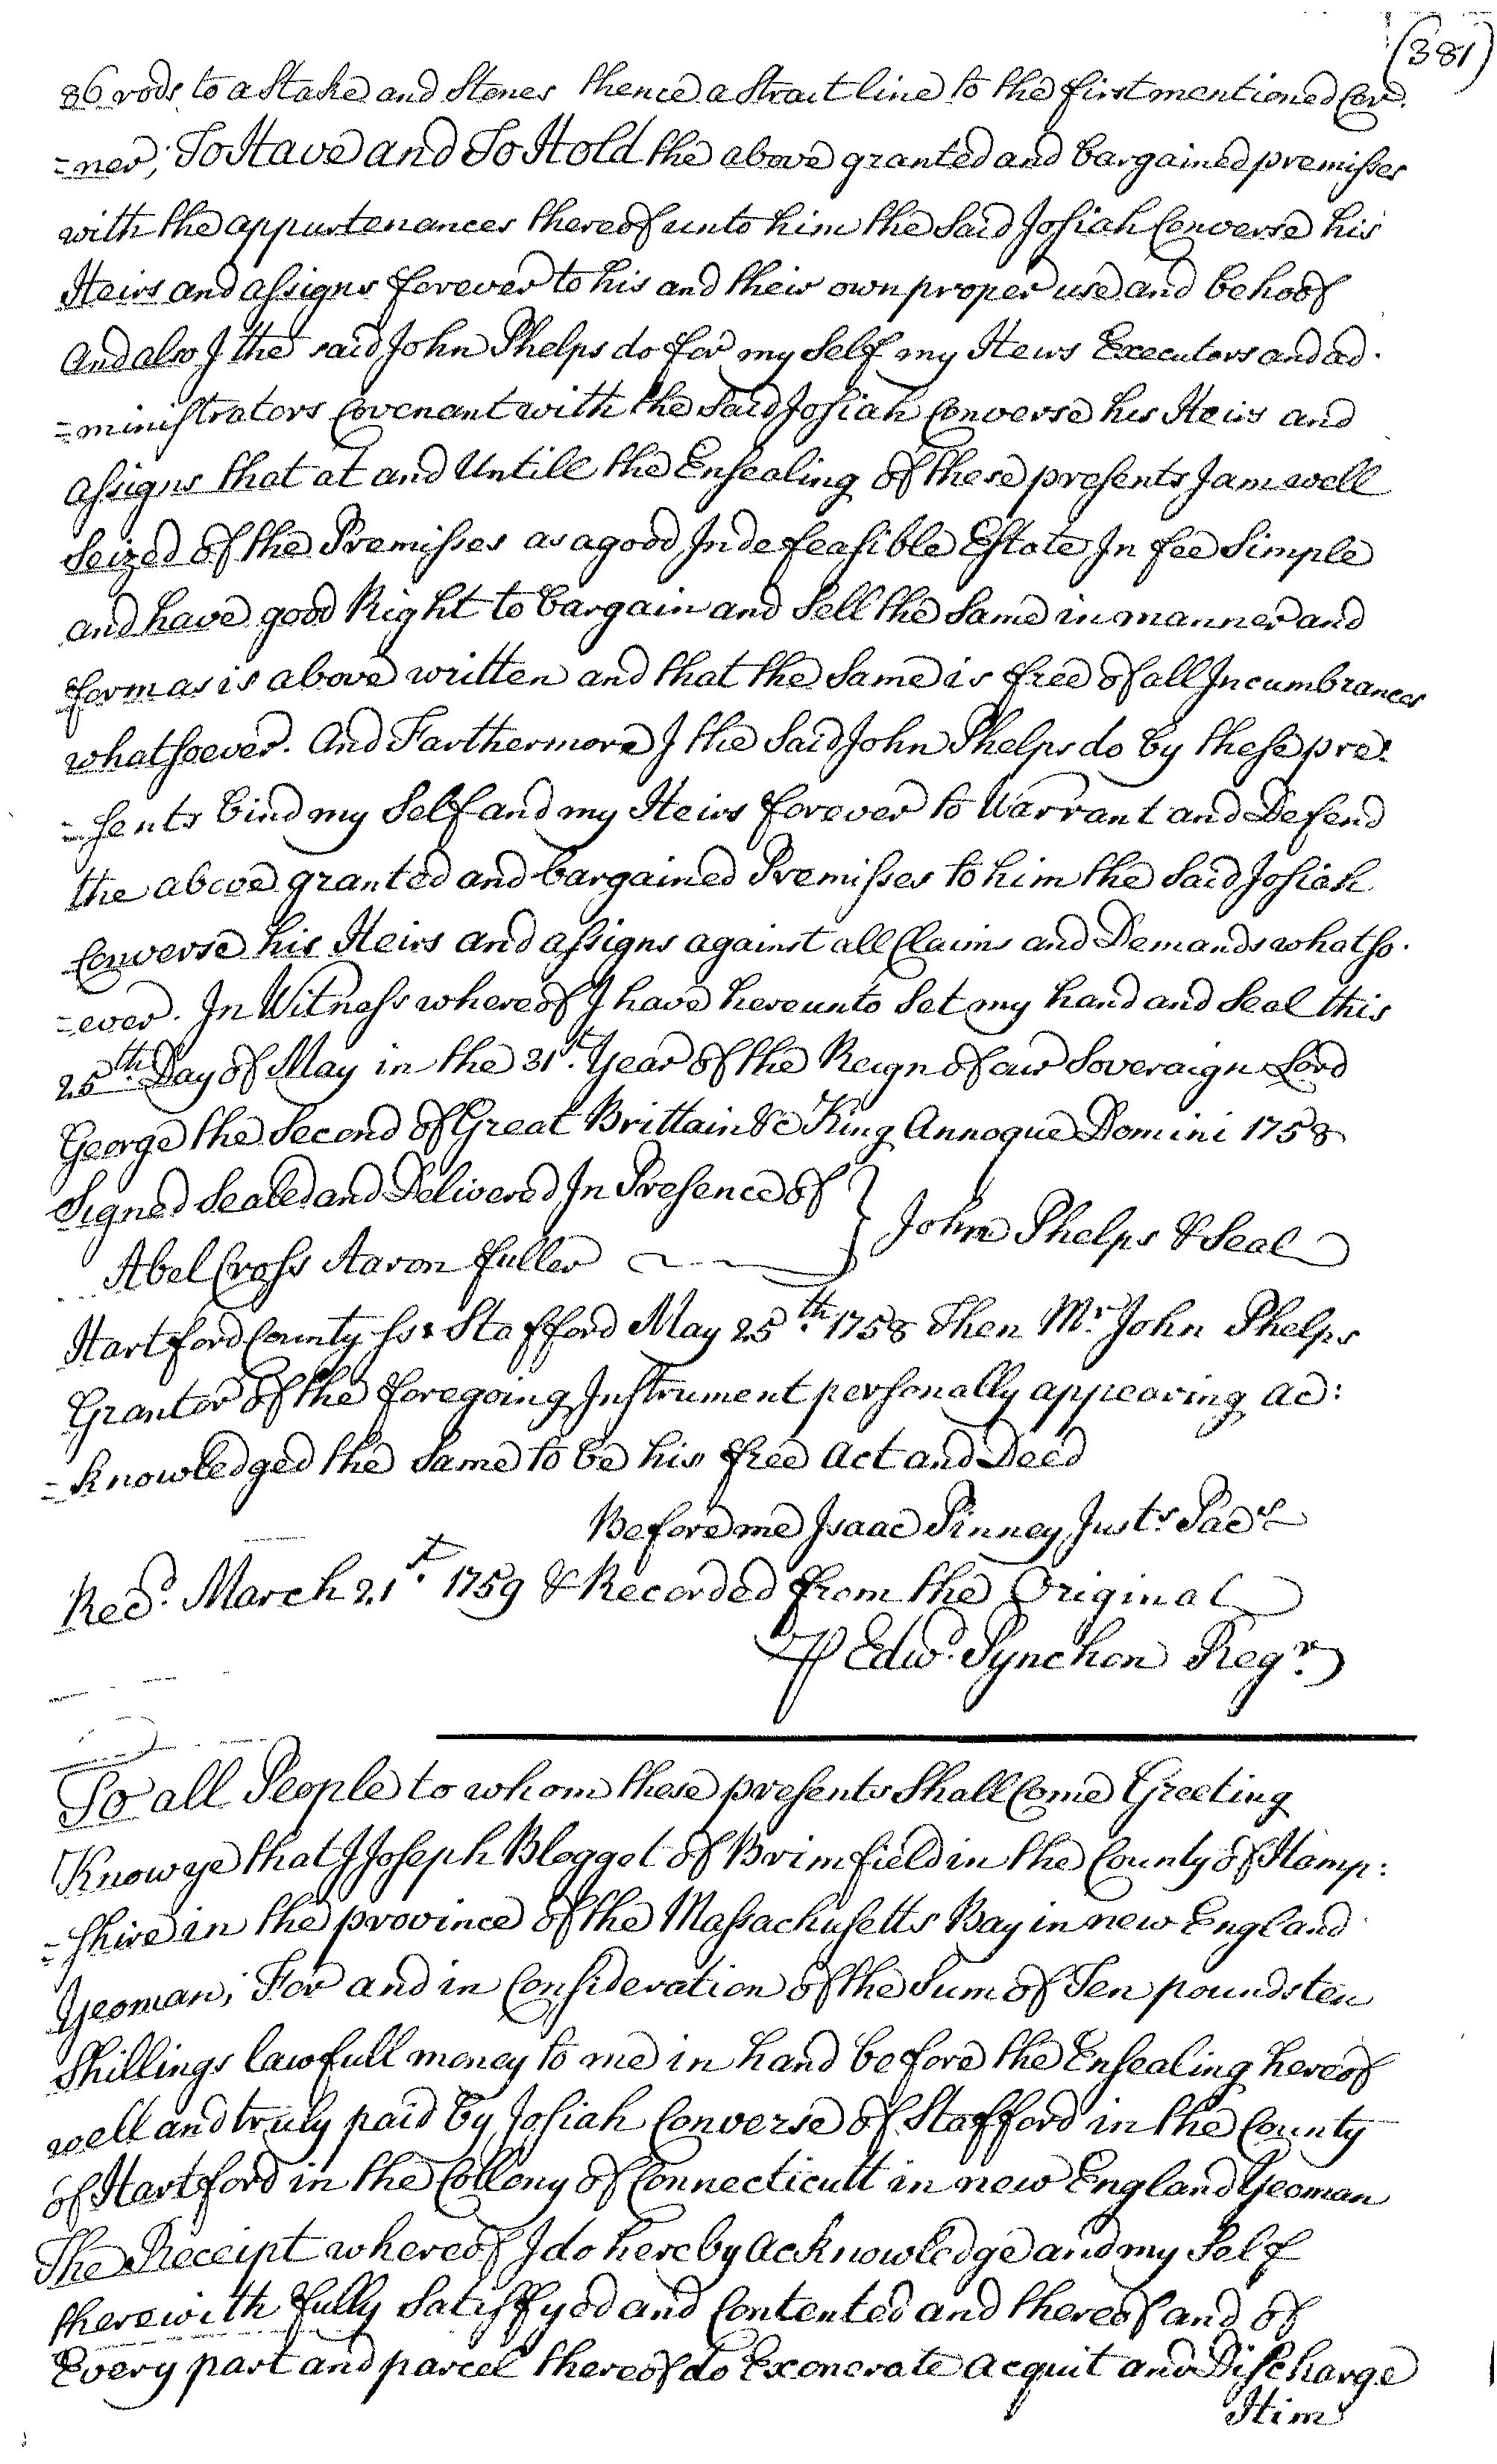 (381)
86 rods to a Stake and Stones thence a Strait line to the first mentioned Cor.
=ner; To Have and To Hold the above granted and bargained premisses
with the appurtenances thereof unto him the Said Josiah Converse his
Heirs and assigns forever to his and their own proper use and behoof
And also I the said John Phelps do for my Self my Heirs Executors and ad.
=ministrators Covenant with the Said Josiah Converse his Heirs and
assigns that at and Untill the Ensealing of these presents I am well
Seized of the Premisses as a good Indefeasible Estate In fee Simple
and have good Right to bargain and Sell the Same in manner and
form as is above written and that the Same is free of all Incumbrances
whatsoever. And Farthermore I the Said John Phelps do by these pre:
=sents bind my Self and my Heirs forever to Warrant and Defend
the above granted and bargained Premisses to him the Said Josiah
Converse his Heirs and assigns against all Claims and Demands whatso.
=ever. In Witness whereof I have hereunto Set my hand and Seal this
25th. Day of May in the 31st. Year of the Reign of our Soveraign Lord
George the Second of Great Brittain &c King Annoque Domini 1758
Signed Sealed and Delivered In Presence of } John Phelps & Seal
Abel Cross Aaron Fuller
Hartford County ss: Stafford May 25th. 1758 Then Mr. John Phelps
Grantor of the foregoing Instrument personally appearing ac:
=knowledged the Same to be his free Act and Deed
Before me Isaac Pinney Justs. Pacs.
Recd. March 21st. 1759 & Recorded from the Original
P Edwd. Pynchon Regr.
To all People to whom these presents Shall Come Greeting
Know ye that I Joseph Bloggot of Brimfield in the County of Hamp:
=shire in the province of the Massachusetts Bay in new England
Yeoman; For and in Consideration of the Sum of Ten pounds ten
Shillings lawfull money to me in hand before the Ensealing hereof
well and truly paid by Josiah Converse of Stafford in the County
of Hartford in the Collony of Connecticutt in new England Yeoman
The Receipt whereof I do hereby Acknowledge and my Self
therewith fully Satisffyed and Contented and thereof and of
Every part and parcel thereof do Exonerate acquit and Discharge
Him